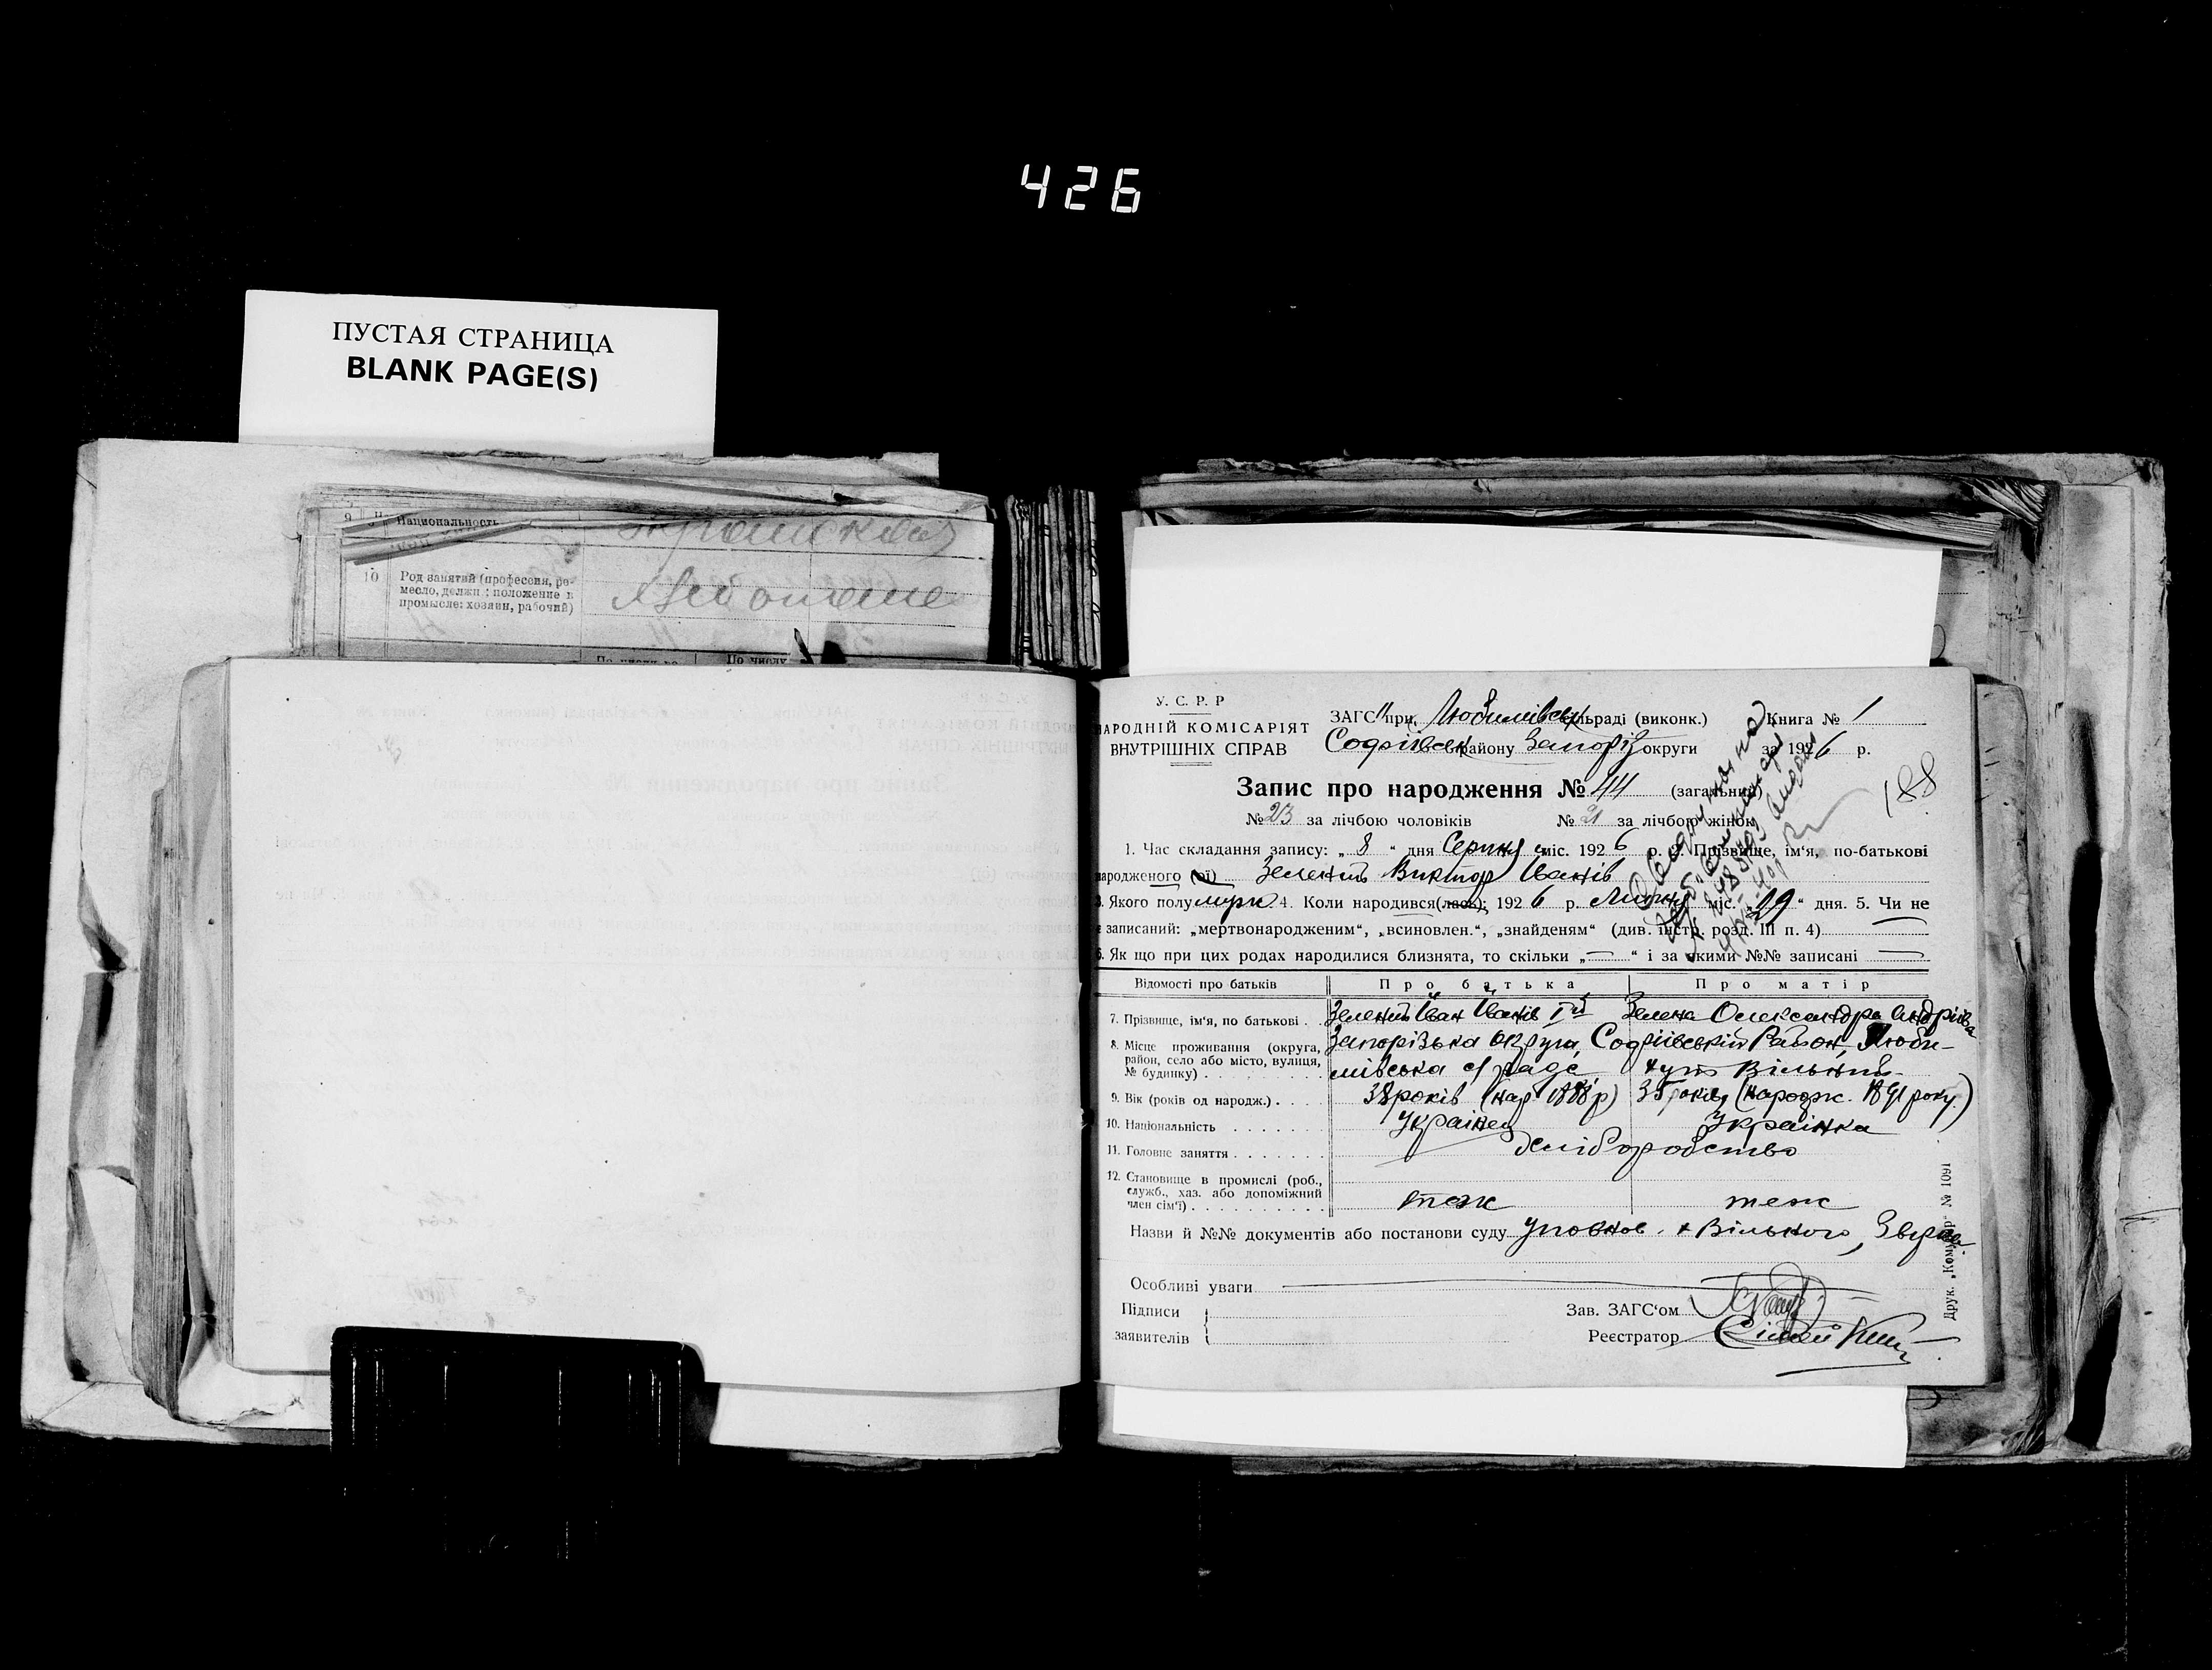 426
ПУСТАЯ СТРАНИЦА
BLANK PAGE(S)
9 Национальность
10 Род занятий (профессия, ре-
месло, должн.: положение в
промысле: хозяин, рабочий)
По числу
У. С. Р. Р
НАРОДНІЙ КОМІСАРІЯТ
ВНУТРІШНІХ СПРАВ
ЗАГС при Любимівськ сільраді (виконк.) Книга № 1
Софіївськ району Запоріз округи за 1926 р.
188
Запис про народження № 44 (загальний)
№ 23 за лічбою чоловіків № 21 за лічбою жінок
1. Час складання запису: „ 8 “ дня Серпня міс. 1926 р. 2. Прізвище, ім'я, по-батькові
народженого (ої) Зелений Виктор Іванів
3. Якого полу мужс. 4. Коли народився(лась): 1926 р. Липня міс. „29“ дня. 5. Чи не
є записаний: „мертвонародженим“, „всиновлен.“, „знайденям“ (див. інстр. розд. III п. 4)
6. Як що при цих родах народилися близнята, то скільки „ — “ і за якими №№ записані —
Відомості про батьків Про батька Про матір
7. Прізвище, ім'я, по батькові Зелений Іван Іванів Iй Зелена Олександра Андріївна
8. Місце проживання (округа, район, село або місто, вулиця, № будинку) Запорізька округа, Софіївський Район, Люби-
мівська с/рада хут Вільний
9. Вік (років од народж.) 38 років (нар 1888 р) 35 років (народж. 1891 року)
10. Національність Українец Українка
11. Головне заняття Хліборобство
12. Становище в промислі (роб., служб., хаз. або допоміжний член сім'ї) теж теж
Назви й №№ документів або постанови суду Уповнов. х Вільного,
Особливі уваги
Підписи
заявителів
Зав. ЗАГС'ом
Реєстратор
Друк. „Комунар“ № 1091